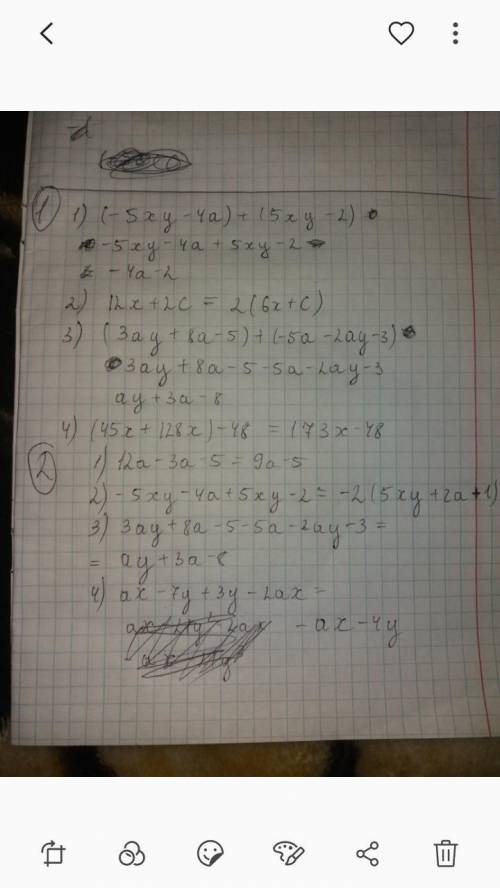 1) 1) (-5xy-4a)+(5xy-2)
-5xy-4a+5xy-2
-4a-2
2) 12x+2c = 2(6x+c)
3) (3ay+8a-5)+(-5a-2ay-3)
3ay+8a-5-5a-2ay-3
ay+3a-8
4) (45x+128x)-48 = 173x-48
2) 1) 12a-3a-5=9a-5
2) -5xy-4a+5xy-2= -2(5xy+2a+1)
3) 3ay+8a-5-5a-2ay-3=
= ay+3a-8
4) ax-7y+3y-2ax=
-ax-4y